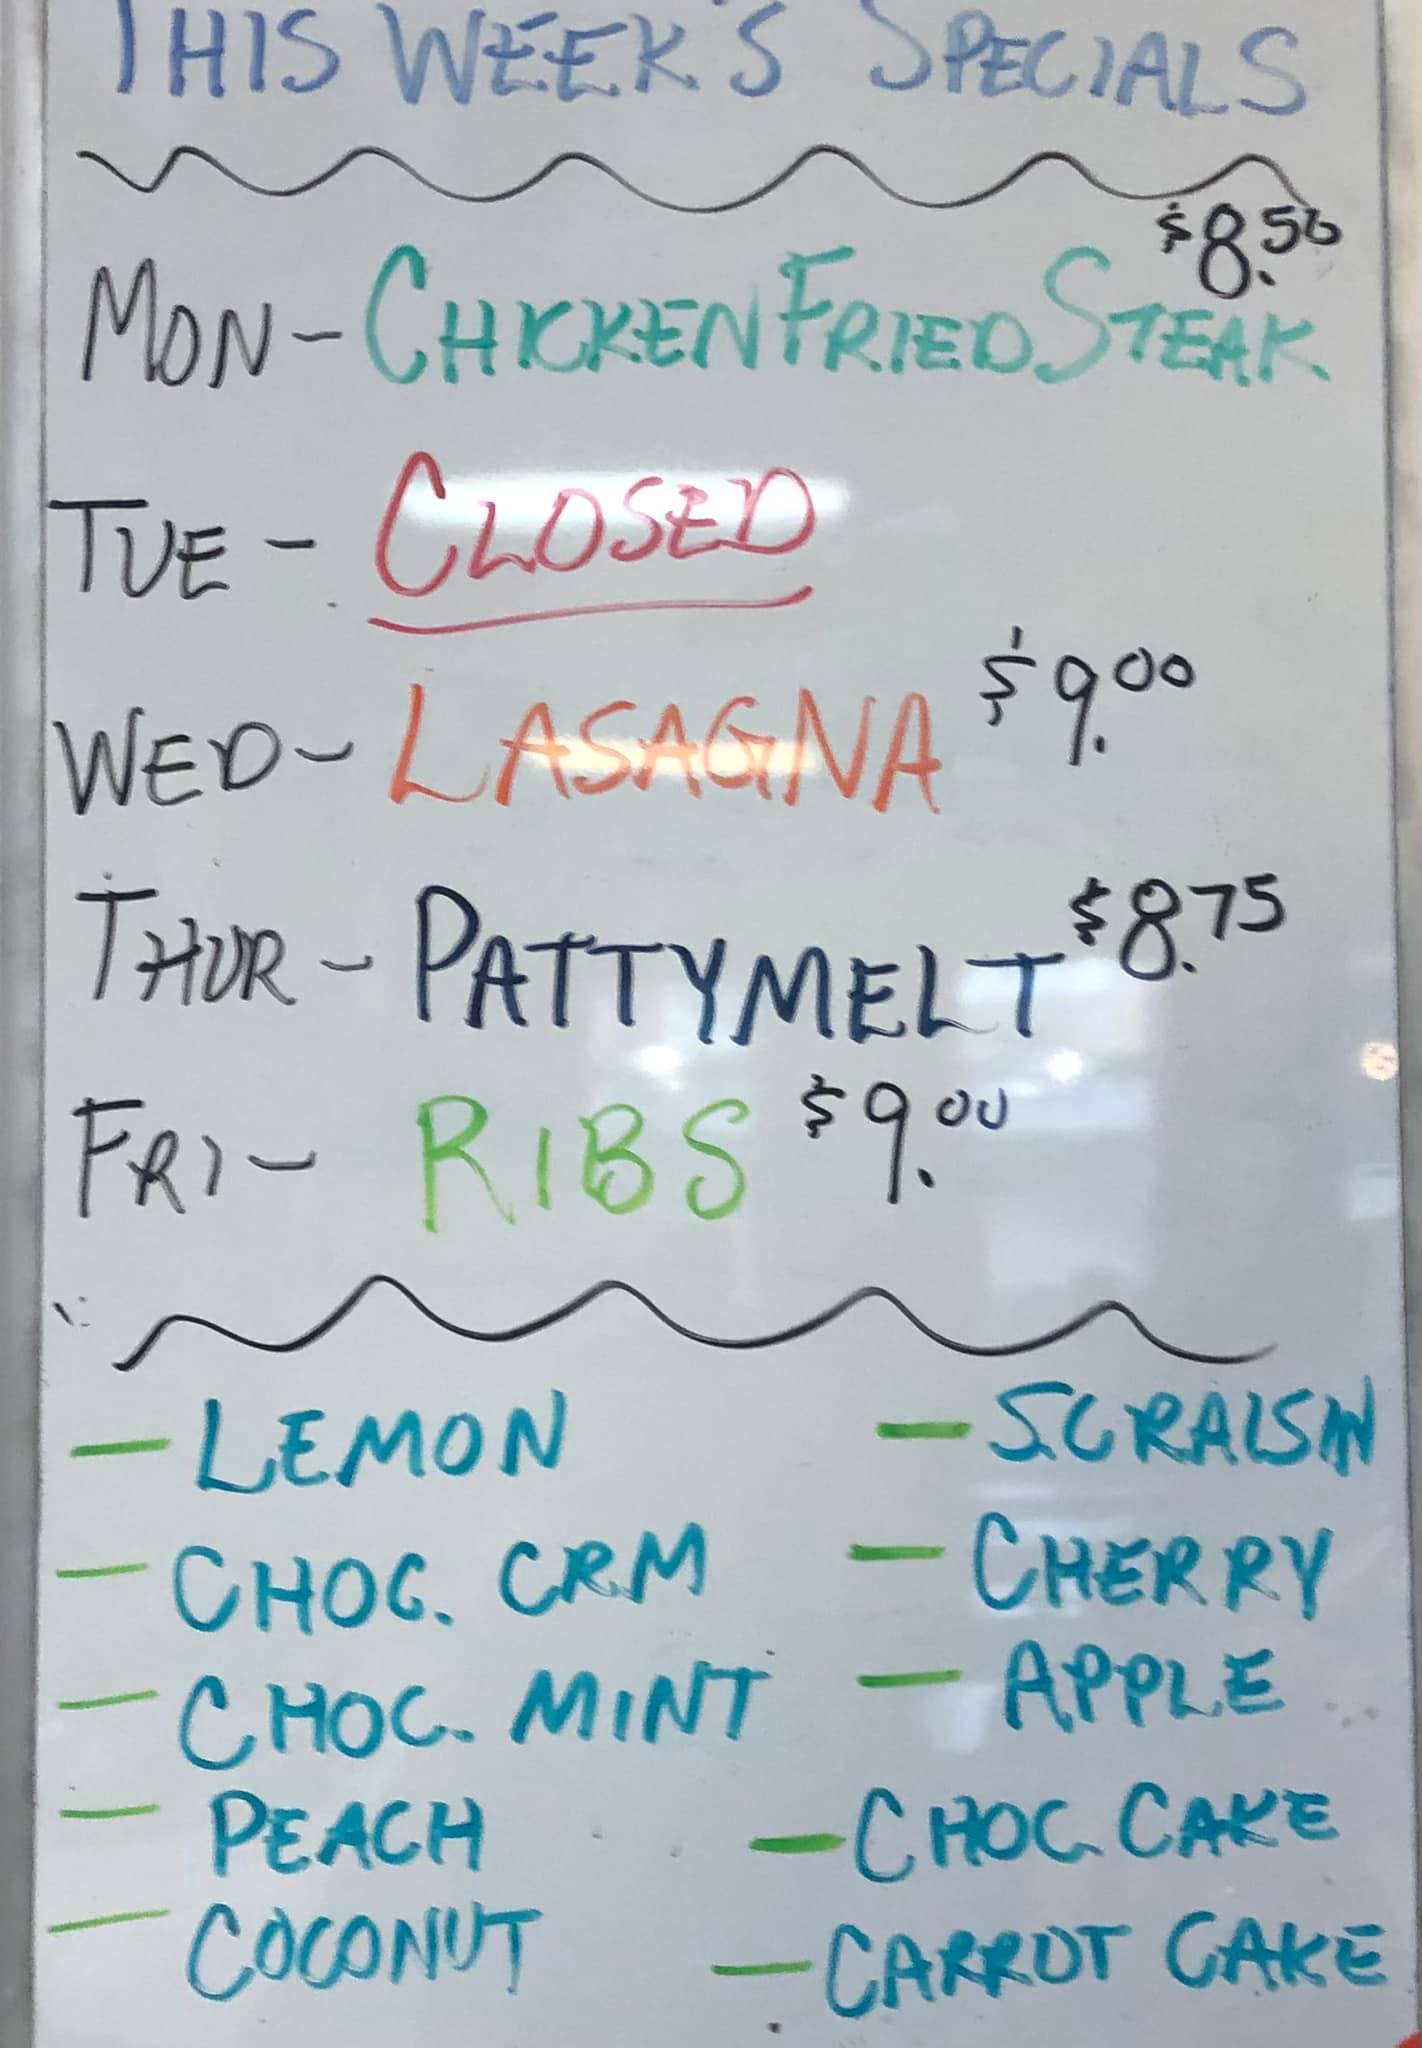 THIS WEEK'S SPECIALS
$8.50
MON - CHICKEN FRIED STEAK
TUE - CLOSED
WED - LASAGNA $9.00
THUR - PATTYMELT $8.75
FRI - RIBS $9.00
- LEMON
- CHOC. CRM
- CHOC. MINT
- PEACH
- COCONUT
- S.C RAISIN
- CHERRY
- APPLE
- CHOC. CAKE
- CARROT CAKE